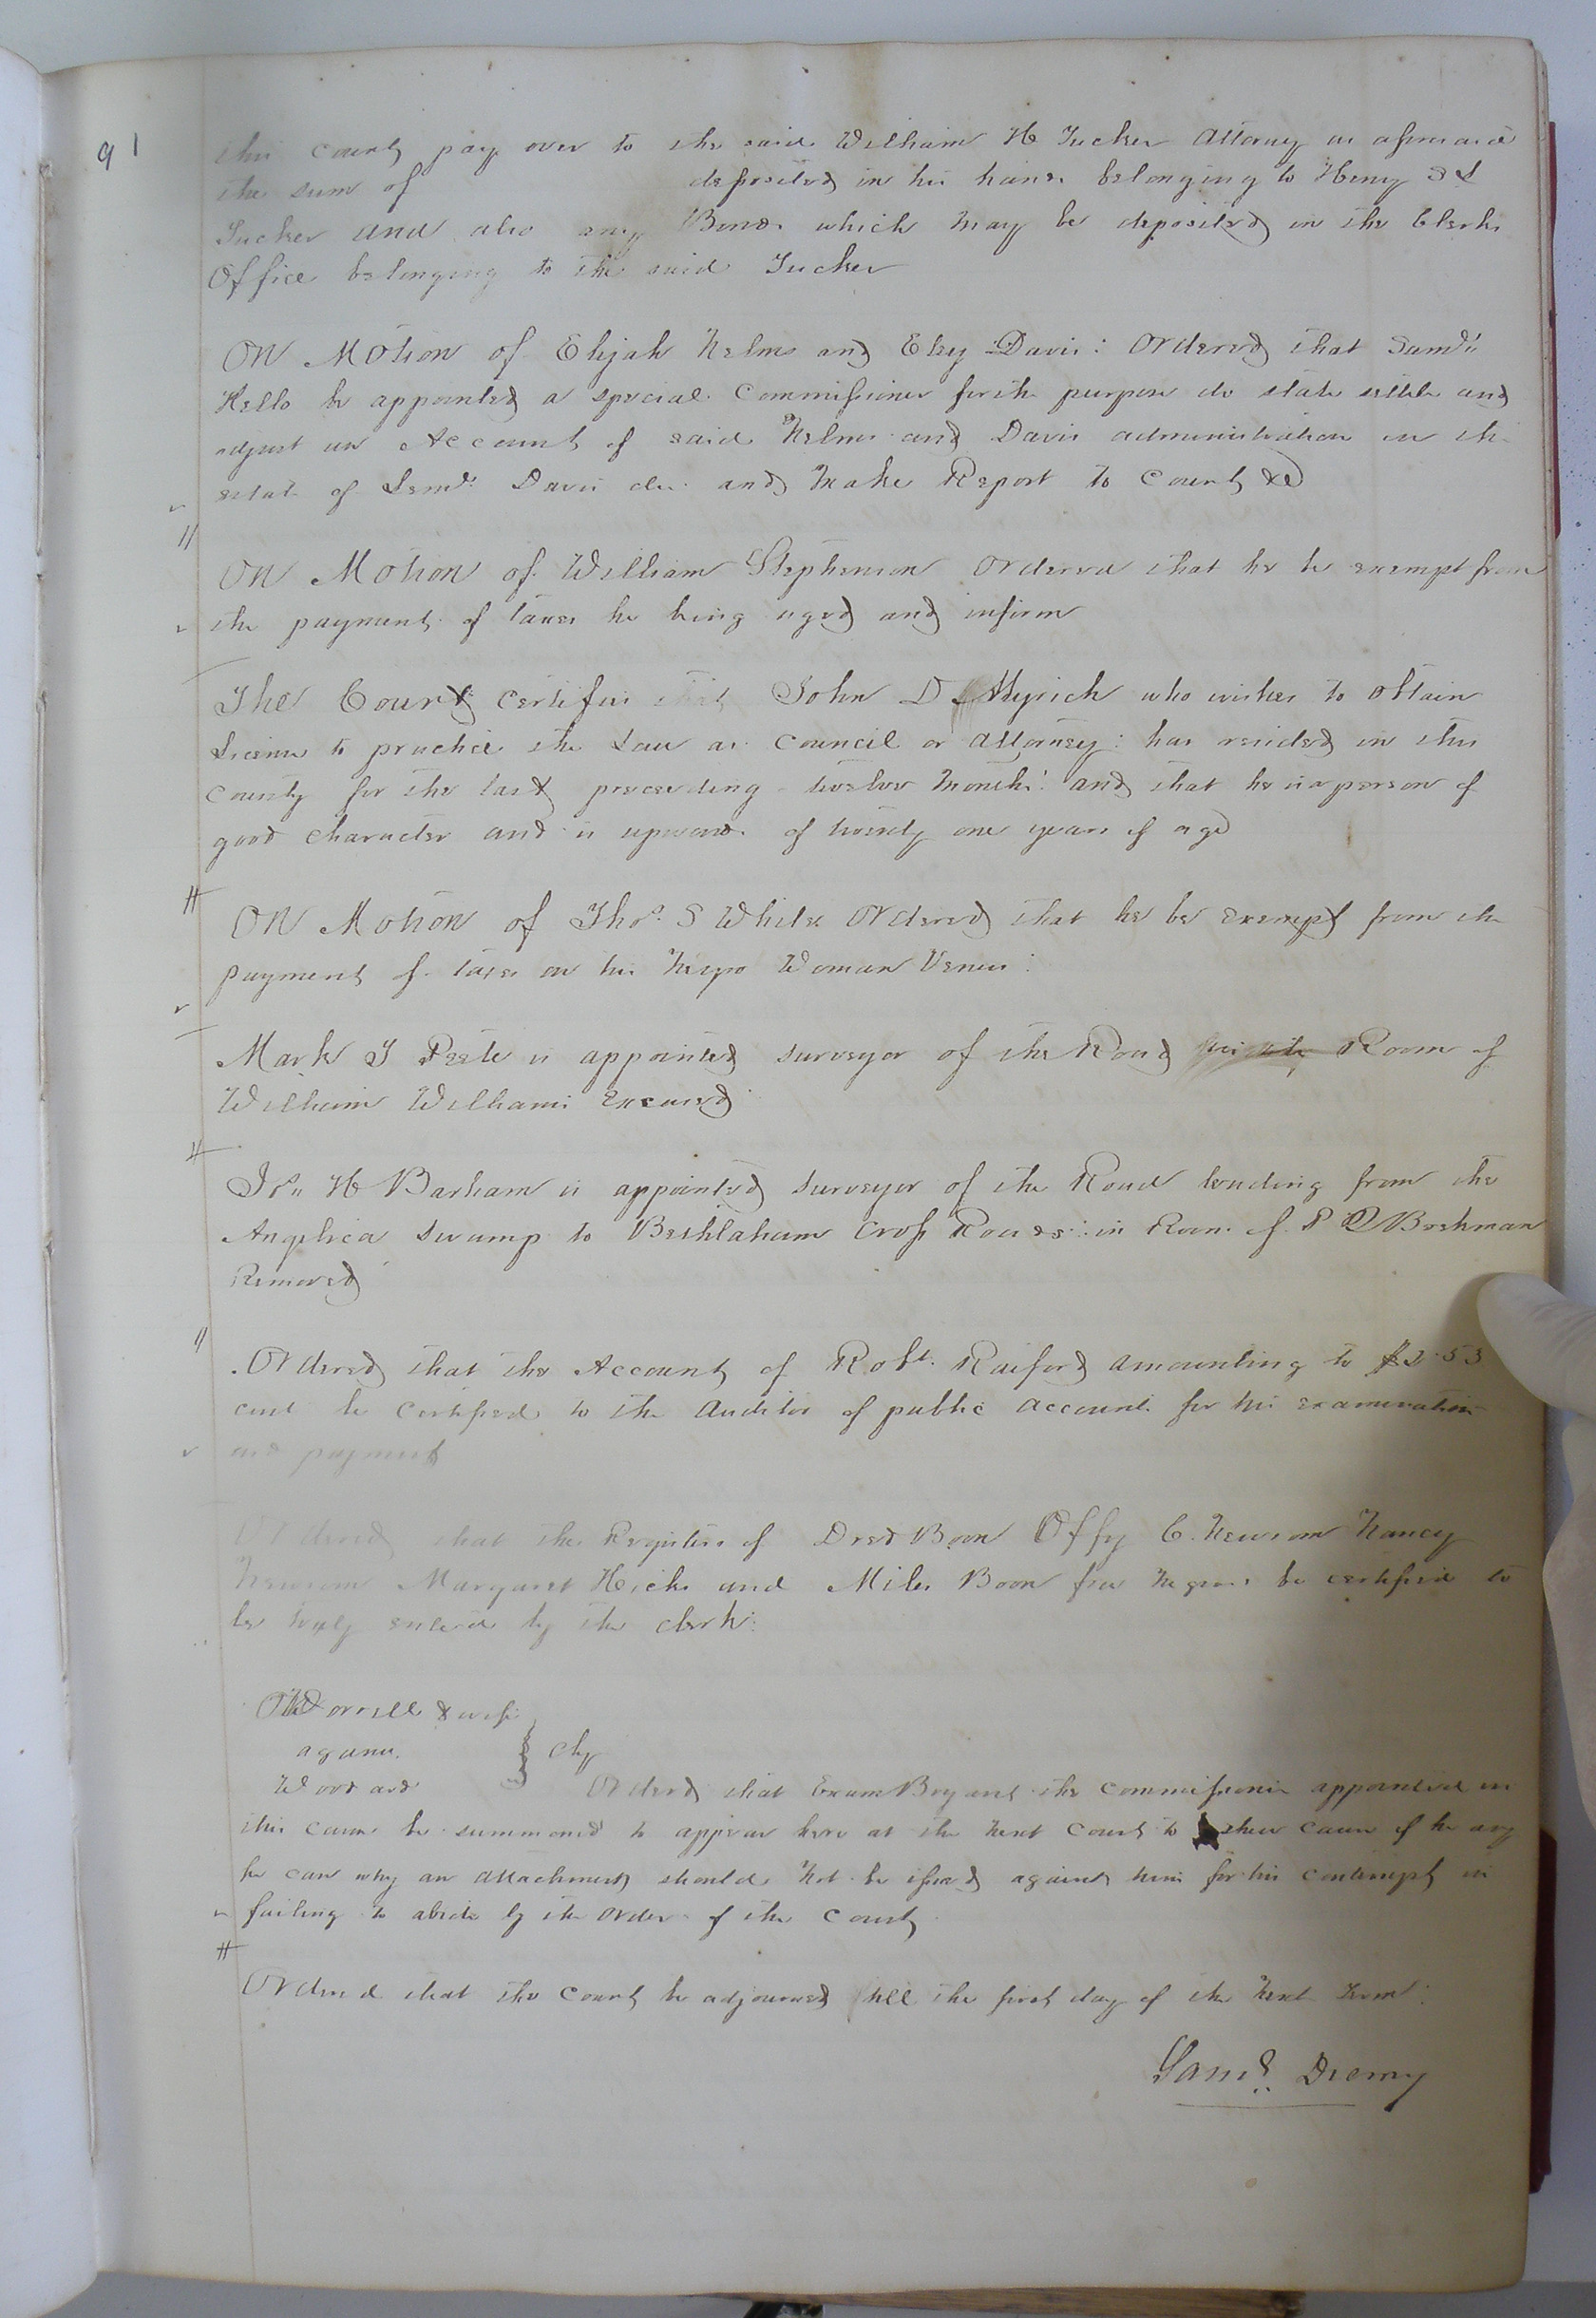 91
this court pay over to the said William H Tucker Attorney as aforesaid
the sum of deposited in his hands belonging to Henry S L
Tucker and also any Bonds which may be deposited in the Clerks
Office belonging to the said Tucker
On Motion of Elijah Nelms and Eley Davis: Ordered that Saml
Kello be appointed a special Commissioner for the purpose to state settle and
adjust an Account of said Nelms and Davis administration on the
estate of Lemd Davis dec and make Report to Court &c
On Motion of William Stephenson Ordered that he be exempt from
the payment of taxes he being aged and infirm
The Court certifies that John D Myrick who wishes to obtain
License to practice the Law as Council or Attorney: has resided in this
County for the last preceeding twelve months: and that he is a person of
good character and is upwards of twenty one years of age
On Motion of Thos. S White Ordered that he be exempt from the
payment of taxes on his Negro Woman Venus:
Mark J Peete is appointed surveyor of the Road Room of
William Williams Excused
Jno H Barham is appointed surveyor of the Road leading from the
Angelica Swamp to Bethlaham Cross Roads: in Room of P Boothman
Removed
Ordered that the Account of Robt. Raiford amounting to $2.53
cent be certified to the Auditor of public accounts for his examination
and payment
Ordered that the Registers of Dred Boon Offy C. Newsom Nancy
Newsom Margaret Hicks and Miles Boon free Negroes be certified to
be truly entered by the clerk:
Worrell & wife
against
Woodard
Chy
Ordered that Exum Bryant the commissioner appointed in
this cause be summoned to appear here at the next Court to shew cause if he any
he can why an attachment should not be issued against him for his contempt in
failing to abide by the order of the Court
Ordered that the Court be adjourned till the first day of the next Term:
Saml. Drewry